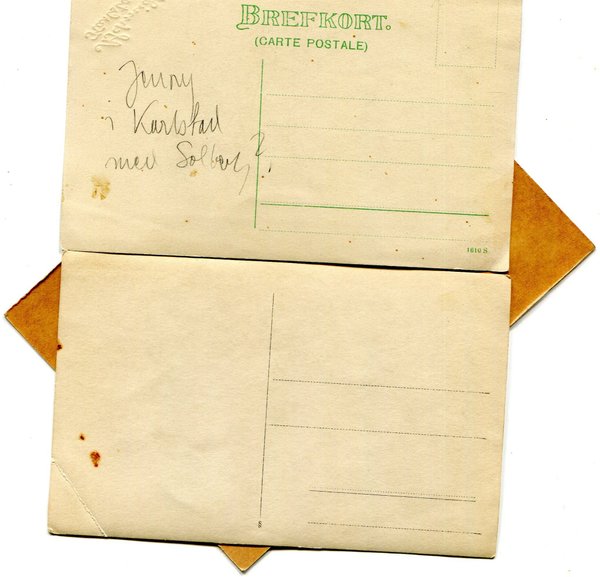 BREFKORT.
(CARTE POSTALE)
Jenny
i Karlstad
med Solberg?
1616 S.
S